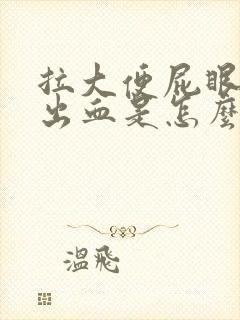 拉大便屁眼
出血是怎麼
溫飛